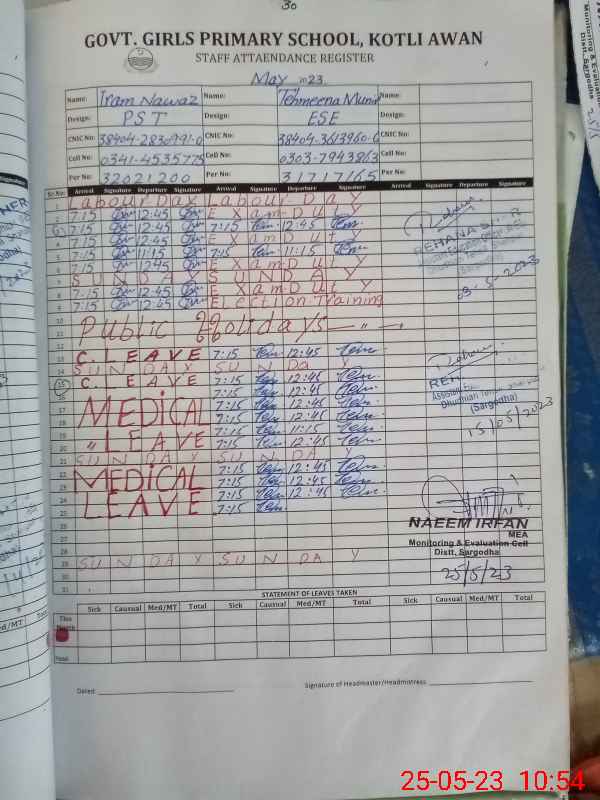 30
GOVT. GIRLS PRIMARY SCHOOL, KOTLI AWAN
STAFF ATTAENDANCE REGISTER
May 2023
Name: Iram Nawaz Name: Tehmeena Munir Name:
Design: PST Design: ESE Design:
CNIC No: 38404-2830991-0 CNIC No: 38404-3613960-6 CNIC No:
Cell No: 0341-4535775 Cell No: 0303-7943863 Cell No:
Per No: 32021200 Per No: 31717165 Per No:
Sr.No: Arrival Signature Departure Signature Arrival Signature Departure Signature Arrival Signature Departure Signature
Labour Day Labour Day
2 7:15 12:45 Exam Duty
7:15 12:45 7:15 12:45
4 7:15 12:45 Exam Duty
5 7:15 11:15 7:15 11:15
6 7:15 12:45 Exam Duty
7 SUNDAY SUNDAY
8 7:15 12:45 Exam Duty
9 7:15 12:45 Election Training
10
11 Public Holidays — " —
12
13 C. LEAVE 7:15 12:45
14 SUNDAY SUNDAY
15 C. LEAVE 7:15 12:45
16 7:15 12:45
17 MEDICAL 7:15 12:45
18 7:15 12:45
19 " LEAVE 7:15 11:15
20 7:15 12:45
21 SUNDAY SUNDAY
22 7:15 12:45
23 MEDICAL 7:15 12:45
24 LEAVE 7:15 12:45
25 7:15
26
27
28 SUNDAY SUNDAY
29
30
31
03-5-2023
(Sargodha)
15/05/2023
NAEEM IRFAN
MEA
Monitoring & Evaluation Cell
Distt, Sargodha
25/5/23
STATEMENT OF LEAVES TAKEN
Sick Causual Med/MT Total Sick Causual Med/MT Total Sick Causual Med/MT Total
This
Total
Dated:
Signature of Headmaster/Headmistress
25-05-23 10:54